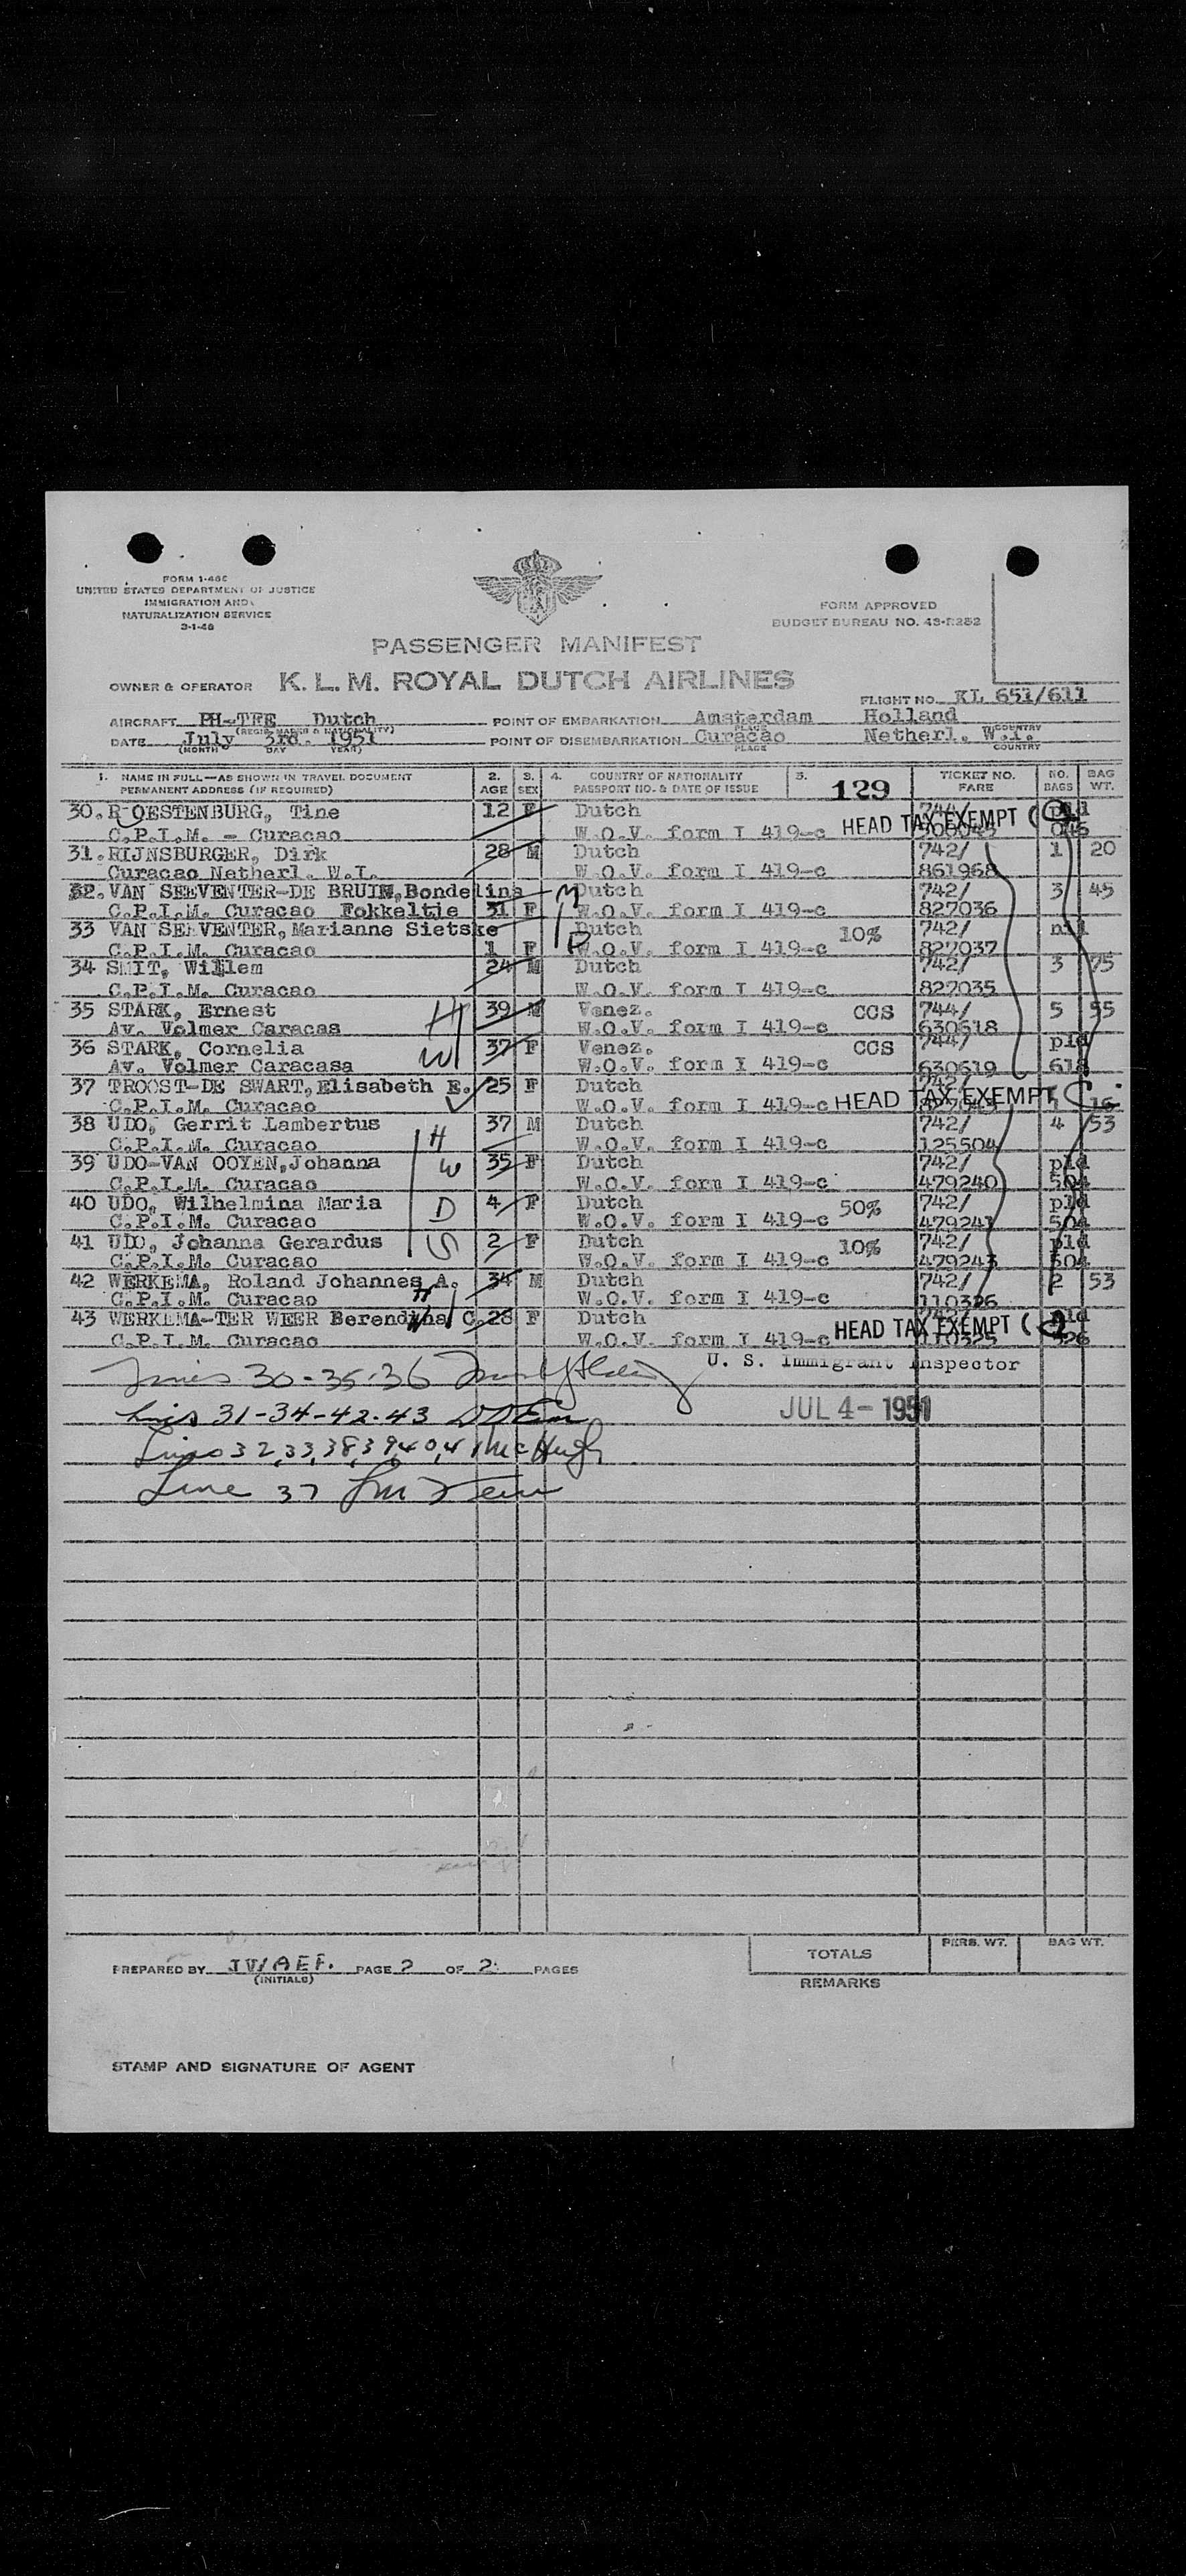 FORM I-466
UNITED STATES DEPARTMENT OF JUSTICE
IMMIGRATION AND
NATURALIZATION SERVICE
3-1-48
FORM APPROVED
BUDGET BUREAU NO. 43-R282
PASSENGER MANIFEST
OWNER & OPERATOR K. L. M. ROYAL DUTCH AIRLINES
FLIGHT NO. KL 651/611
AIRCRAFT PH-TFE Dutch POINT OF EMBARKATION Amsterdam Holland
(REGIS. MARKS & NATIONALITY) PLACE COUNTRY
DATE July 3rd. 1951 POINT OF DISEMBARKATION Curaçao Netherl. W.I.
(MONTH DAY YEAR) PLACE COUNTRY
1. NAME IN FULL—AS SHOWN IN TRAVEL DOCUMENT 2. 3. 4. COUNTRY OF NATIONALITY 5. 129 TICKET NO. NO. BAG
PERMANENT ADDRESS (IF REQUIRED) AGE SEX PASSPORT NO. & DATE OF ISSUE FARE BAGS WT.
30. ROESTENBURG, Tine 12 F Dutch 744/ pld
C.P.I.M. - Curacao W.O.V. form I 419-c HEAD TAX EXEMPT
31. RIJNSBURGER, Dirk 28 M Dutch 742/ 1 20
Curacao Netherl. W.I. W.O.V. form I 419-c 861968
32. VAN SEEVENTER-DE BRUIN, Bondelina M Dutch 742/ 3 45
C.P.I.M. Curacao Fokkeltje 31 F W.O.V. form I 419-c 827036
33 VAN SEEVENTER, Marianne Sietske Dutch 10% 742/ nil
C.P.I.M. Curacao 1 F W.O.V. form I 419-c 827037
34 SMIT, Willem 24 M Dutch 742/ 3 75
C.P.I.M. Curacao W.O.V. form I 419-c 827035
35 STARK, Ernest H 39 M Venez. CCS 744/ 5 55
Av. Volmer Caracas W.O.V. form I 419-c 630618
36 STARK, Cornelia W 37 F Venez. CCS 744/ pld
Av. Volmer Caracasa W.O.V. form I 419-c 630619 618
37 TROOST-DE SWART, Elisabeth E. 25 F Dutch 742/
C.P.I.M. Curacao W.O.V. form I 419-c HEAD TAX EXEMPT 16
38 UDO, Gerrit Lambertus H 37 M Dutch 742/ 4 53
C.P.I.M. Curacao W.O.V. form I 419-c 125504
39 UDO-VAN OOYEN, Johanna W 35 F Dutch 742/ pld
C.P.I.M. Curacao W.O.V. form I 419-c 479240 504
40 UDO, Wilhelmina Maria D 4 F Dutch 50% 742/ pld
C.P.I.M. Curacao W.O.V. form I 419-c 479241 504
41 UDO, Johanna Gerardus S 2 F Dutch 10% 742/ pld
C.P.I.M. Curacao W.O.V. form I 419-c 479243 504
42 WERKEMA, Roland Johannes A. H 34 M Dutch 742/ 2 53
C.P.I.M. Curacao W.O.V. form I 419-c 110326
43 WERKEMA-TER WEER Berendina C. W 28 F Dutch pld
C.P.I.M. Curacao W.O.V. form I 419-c HEAD TAX EXEMPT 110325 326
Lines 30-35-36 U. S. Immigrant Inspector
Lines 31-34-42-43 JUL 4- 1951
Lines 32,33,38,39,40,41 McHugh
Line 37
PREPARED BY JV/AEF. PAGE 2 OF 2 PAGES
(INITIALS)
TOTALS PERS. WT. BAG WT.
REMARKS
STAMP AND SIGNATURE OF AGENT